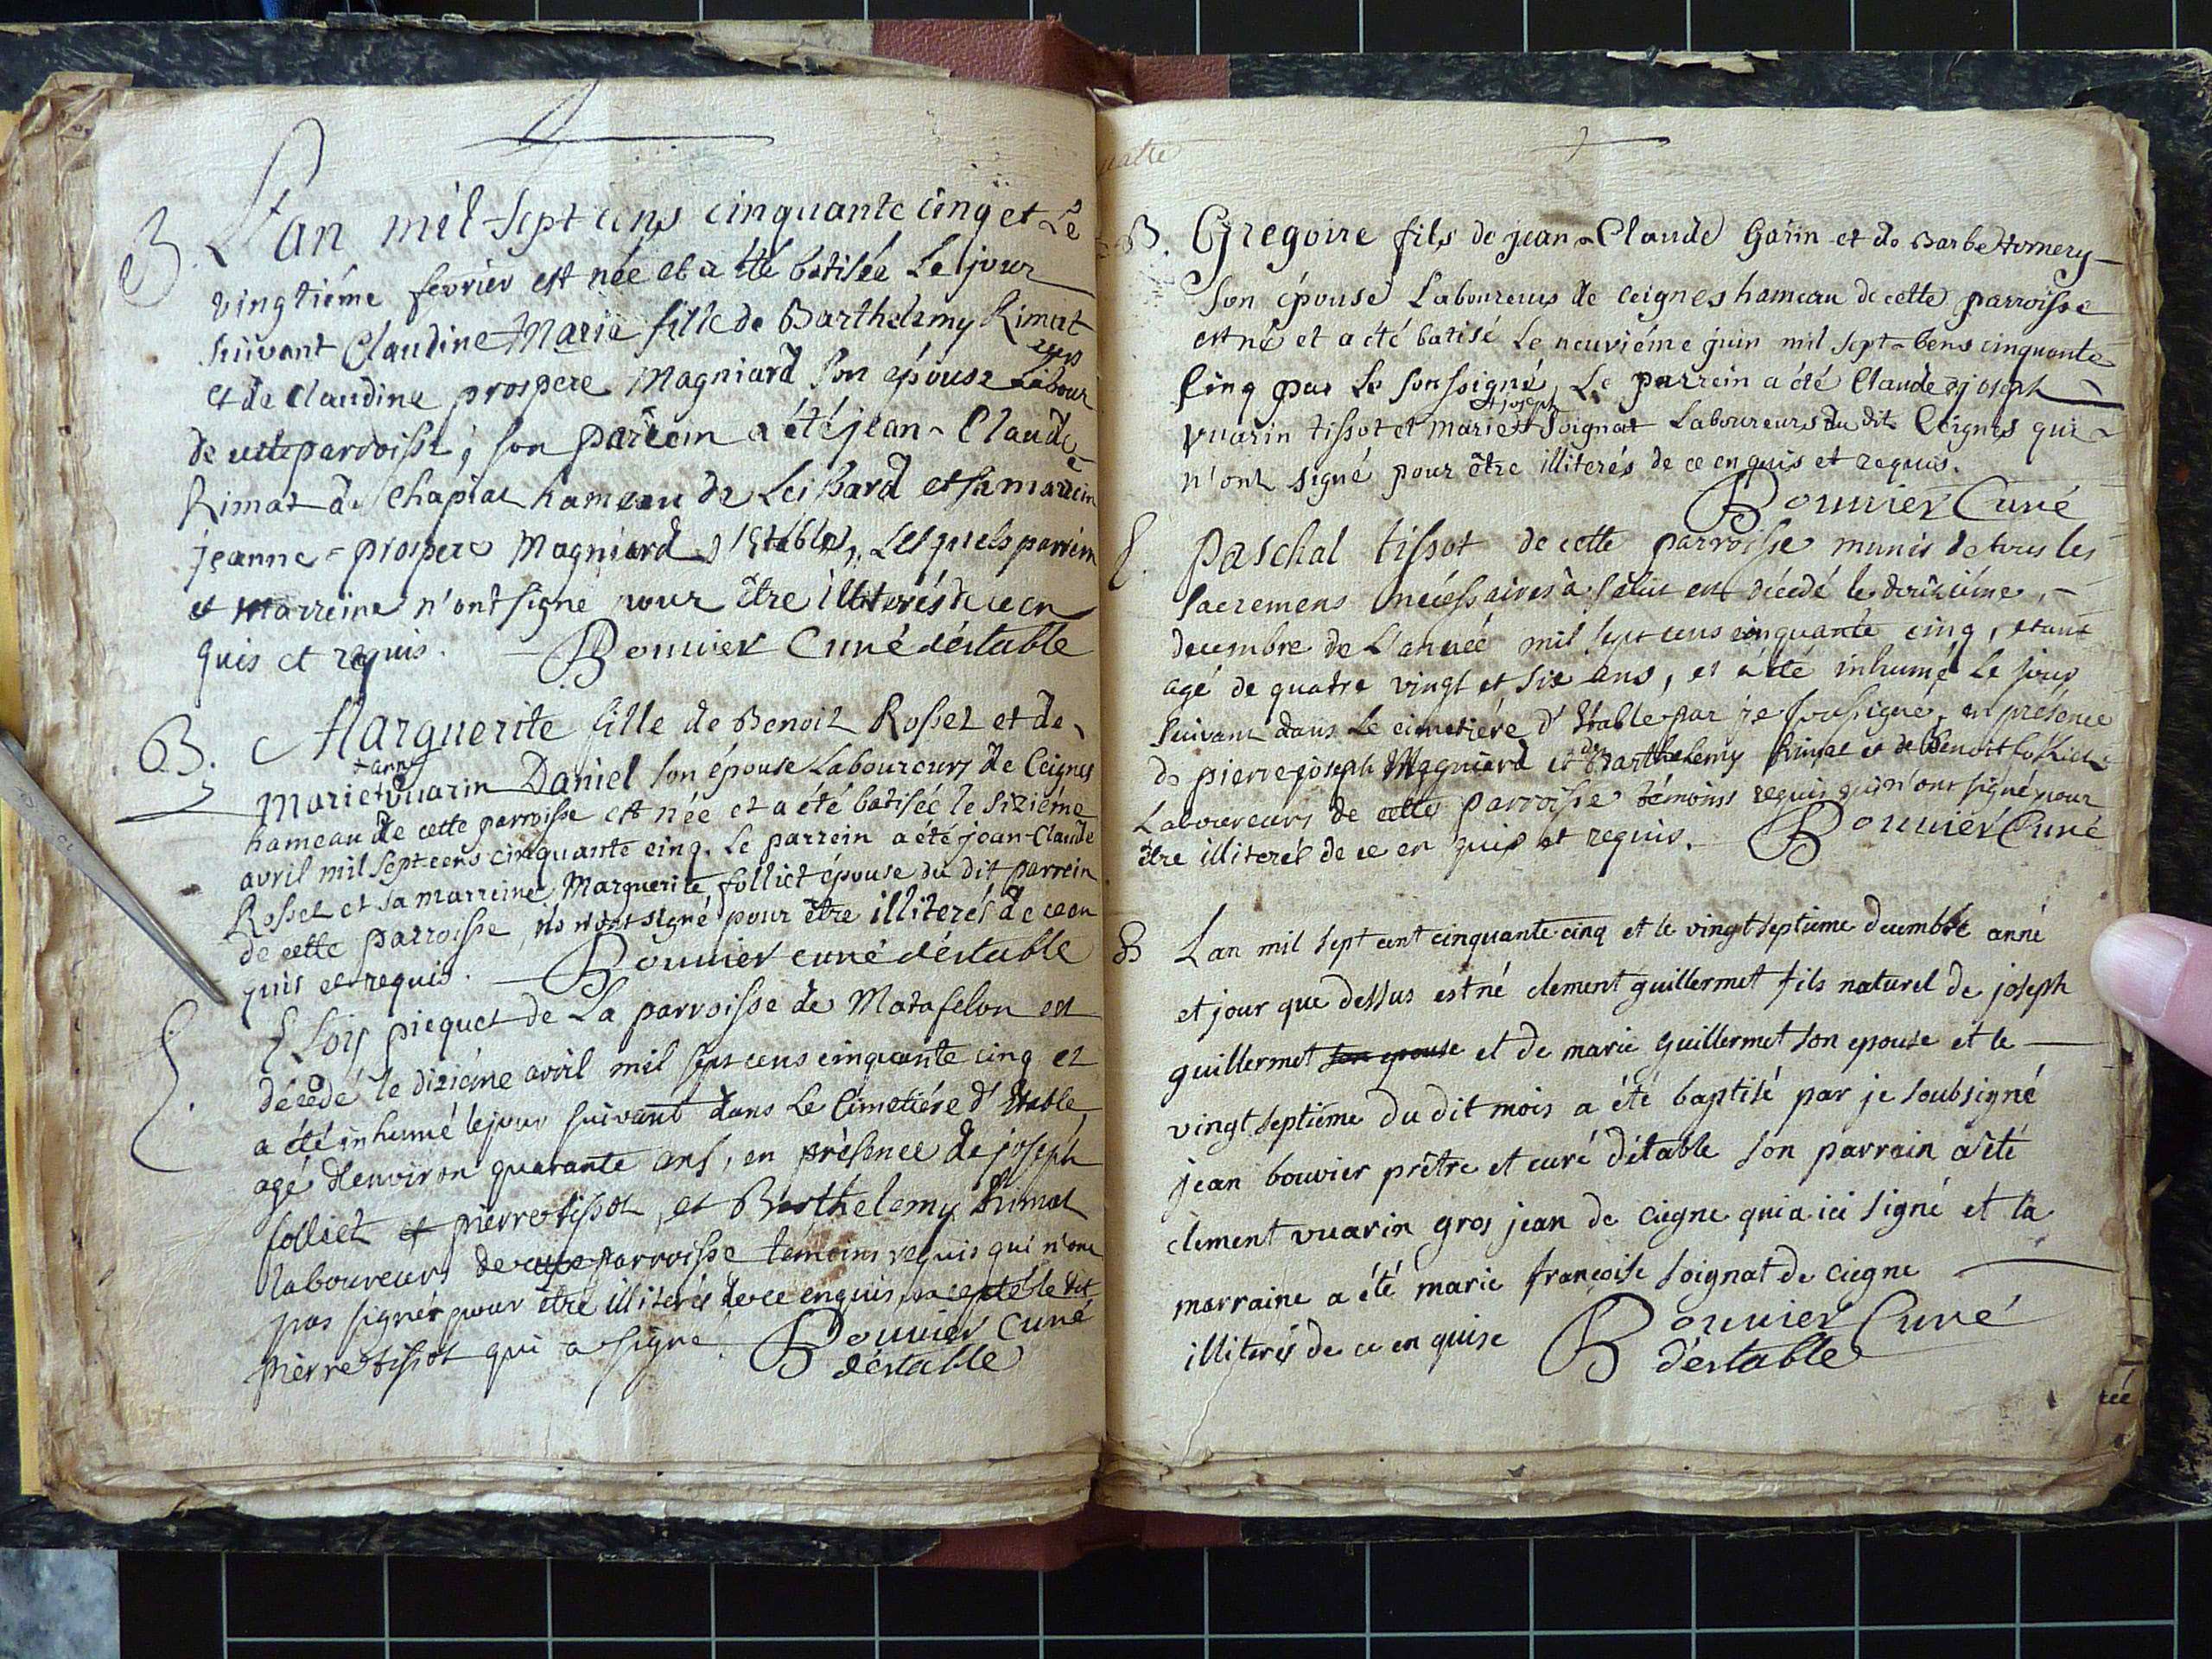 B. L'an mil sept cens cinquante cinq et Le
vingtiéme fevrier est née et a été batisée Le jour
suivant Claudine Marie fille de Barthelemy Rimat
et de Claudine prospere Magniard son épouse Labour
eurs
de cette parroisse, son parrein a été jean-Claude
Rimat de Chapiat hameau de Leissard et sa marrein
jeanne-prospere Magniard d'Estables, Lesquels parrein
et marreine n'ont signé pour être illiterés de ce en
quis et requis. Bouvier Curé d'éstable
B. Marguerite fille de Benoit Rosset et de
Marie + anne vuarin Daniel son épouse Laboureurs de Ceignes
hameau de cette parroisse est née et a été batisée le siziéme
avril mil sept cens cinquante cinq. Le parrein a été jean-Claude
Rosset et sa marreine Marguerite folliet épouse du dit parrein
de cette parroisse, ils n'ont signé pour être illiterés de ce en
quis et requis. Bouvier curé d'éstable
Elois piequet de La parroisse de Matafelon est
décedé le diziéme avril mil sept cens cinquante cinq et
a été inhumé le jour suivant dans Le Cimetiére d'Estable,
agé d'environ quarante ans, en présence de joseph
folliet et pierre tissot, et Barthelemy Rimat
laboureurs de cette parroisse témoins requis qui n'ont
pas signér pour être illiterés de ce enquis, excepté le dit
pierre tissot qui a signe. Bouvier Curé
d'éstable
B. Gregoire fils de jean-Claude Garin et de Barbe
son épouse Laboureurs de ceignes hameau de cette parroisse
est né et a été batisé Le neuviéme juin mil sept-cens cinquante
cinq par Le soussigné, Le parrein a été Claude joseph
vuarin tissot et Marie + joseph Soignat Laboureurs du dit Ceignes qui
n'ont signé pour être illiterés de ce enquis et requis.
Bouvier Curé
Paschal tissot de cette parroisse munis de tous les
sacremens nécéssaires à salut est décedé le douziéme,
decembre de L'année mil sept cens cinquante cinq, etant
agé de quatre vingt et six ans, et a été inhumé Le jour
suivant dans Le cimetiére d'Estable par je soussigné, en présence
de pierre joseph Magniard et de Barthelemy Rimat et de Benoit
Laboureurs de cette parroisse témoins requis qui n'ont signé pour
être illiterés de ce en quis et requis. Bouvier Curé
B Lan mil sept cent cinquante cinq et le vingt septieme decembre anné
et jour que dessus est né clement guillermet fils naturel de joseph
guillermet son epouse et de marie guillermet son epouse et le
vingt septiéme du dit mois a été baptisé par je soubsigné
jean bouvier prêtre et curé d'étable son parrain a été
clement vuarin gros jean de ciegne qui a ici signé et la
marraine a été marie françoise soignat de ciegne
illiterés de ce en quise Bouvier Curé
d'éstable